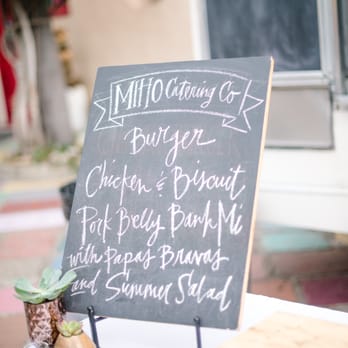 MIHO Catering Co
Burger
Chicken & Biscuit
Pork Belly Banh Mi
with Papas Bravas
and Summer Salad